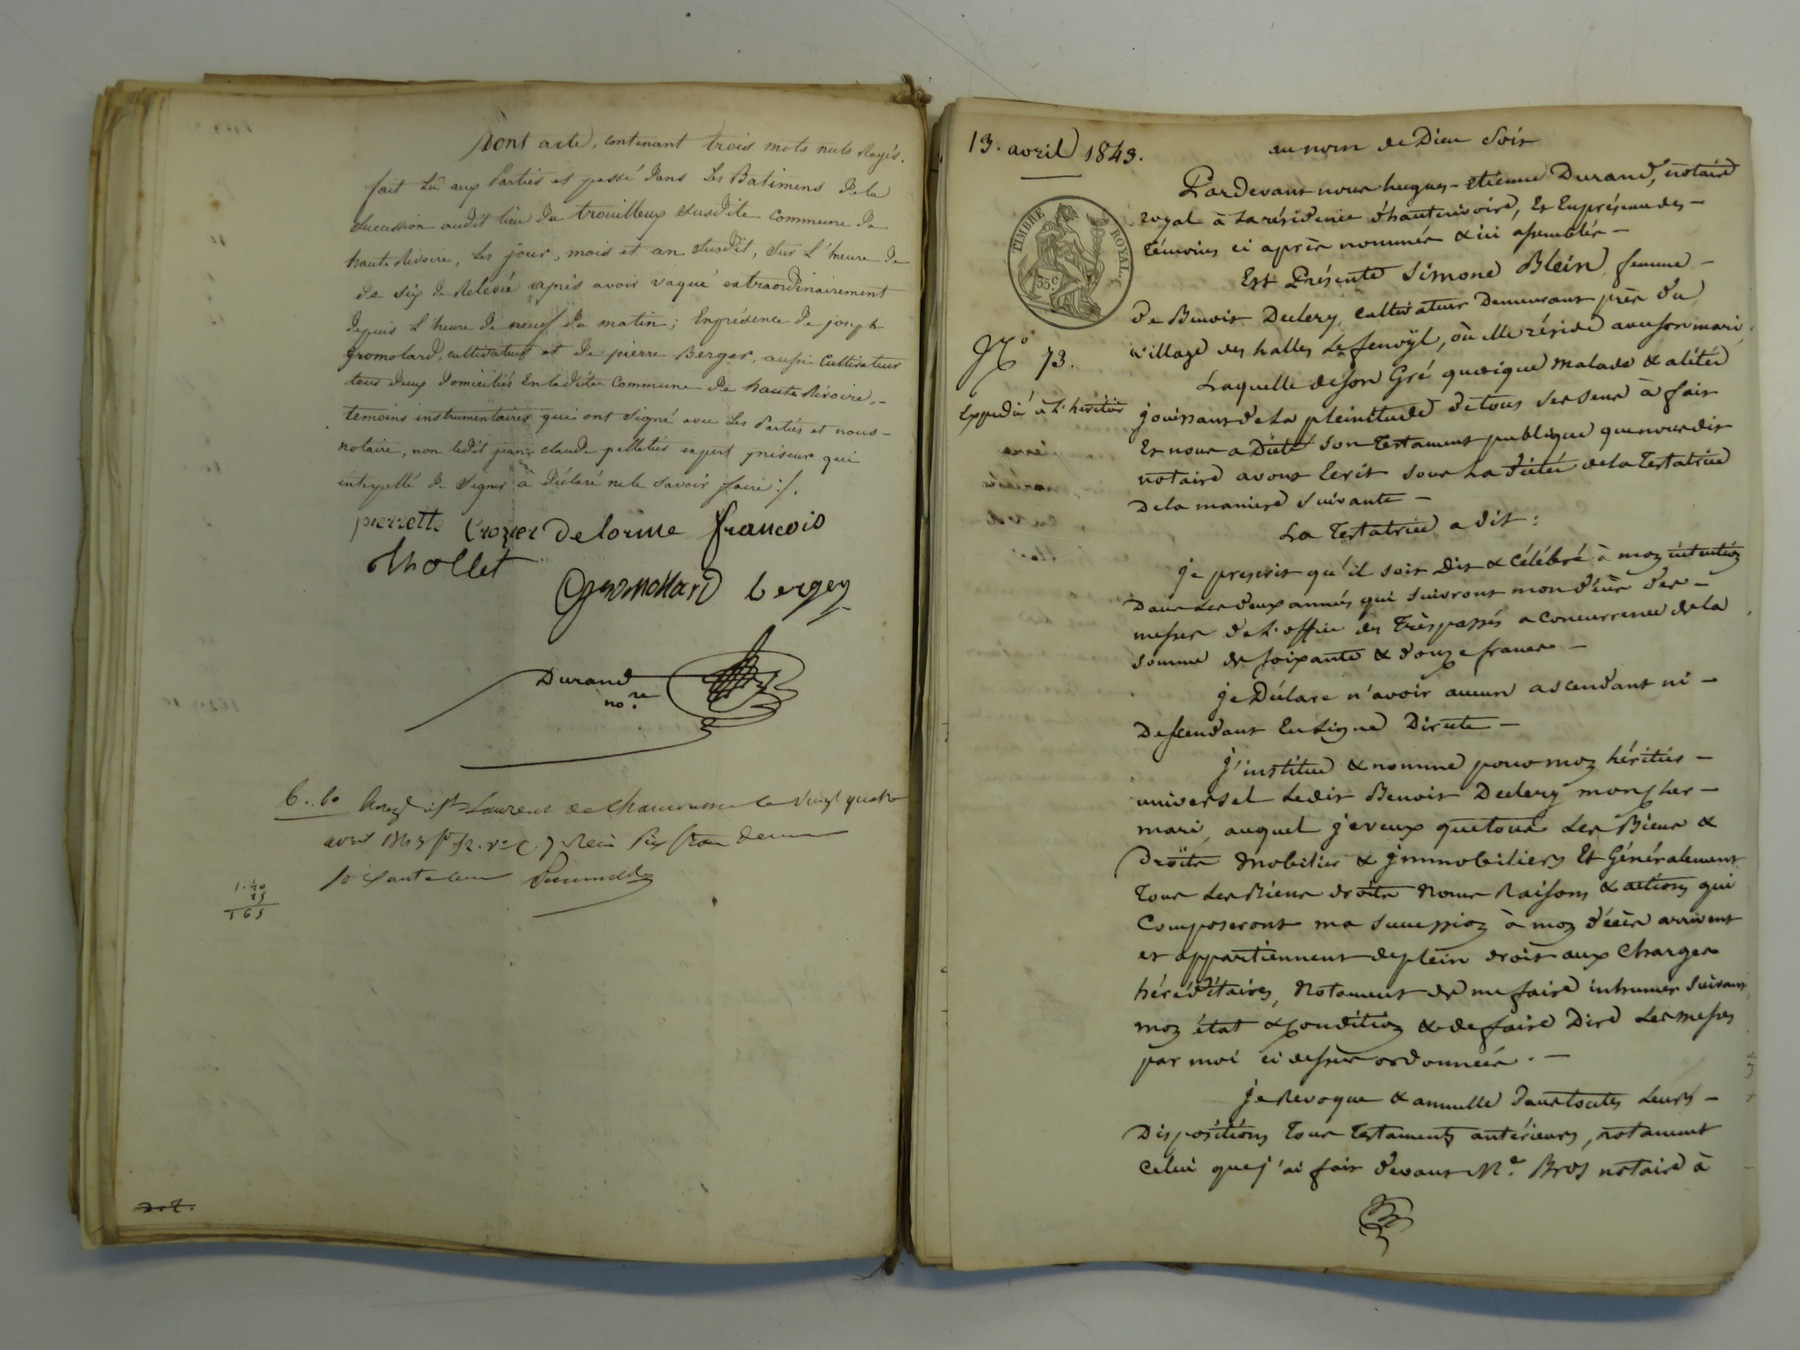 Dont acte, contenant trois mots nuls Rayés.
fait Lû aux Parties et passé dans Les Batimens de la
succession audit lieu du trouilleux susdite Commune de
haute Rivoire, Les jour, mois et an susdit, sur L'heure de
de six de Relevée après avoir vaqué extraordinairement
depuis L'heure de neuf du matin; En présence de joseph
gromolard, cultivateur et de pierre Berger, aussi Cultivateur
tous deux domiciliés En ladite Commune de haute Rivoire, –
temoins instrumentaires qui ont signé avec Les Parties et nous –
notaire, non ledit jean claude pelletier expert priseur qui
interpellé de signer a déclaré ne le savoir faire :/.
pierrette Crozier Delorme francois
thollet
Gromollard berger
Durand
no.re
vingt quatre
avril
1. 50
15
1 65
13. avril 1843.
au nom de Dieu Soit
TIMBRE ROYAL.
35c
Pardevant nous hugues-etienne Durand, notaire
royal à La résidence d'hauterivoire, Et En présence des –
témoins ci après nommés & ici assemblés –
Est Présente Simone Blein femme –
de Benoit Declery, cultivateur Demeurant près du
village des halles Le fenoÿl, où elle réside avec son mari,
N.o 73.
Expedié à L'héritier
Laquelle de son Gré quoique malade & alitée
jouissant de La pleinitude de tous ses sens à fait
Et nous a Dicté son Testament publique que nous dit
notaire avons Ecrit sous La dictée de la Testatrice
De la maniere suivante –
La Testatrice a dit :
je prescrit qu'il soit Dit & célébré à mon intention
Dans Les deux années qui suivront mon décès des –
messes de L'office des Trèspassés a concurrence de la
somme de soixante & douze francs –
je Déclare n'avoir aucun ascendant ni –
Descendant En Ligne Directe –
j'institue & nomme pour mon héritier –
universel Ledit Benoit Declery mon cher –
mari, auquel je veux que tous Les Biens &
Droits mobilier & jmmobiliers Et Généralement
Tous Les Biens droits Noms Raisons & actions qui
Composeront ma succession à mon décès arrivent
et appartiennent de plein droit aux Charges
héréditaires, Notament de me faire inhumer suivant
mon état & condition & de faire Dire Les messes
par moi ci dessus ordonnées. –
je Revoque & annulle dans toutes Leurs –
Dispositions Tous Testaments antérieurs, notament
Celui que j'ai fait devant M.e Bros notaire à